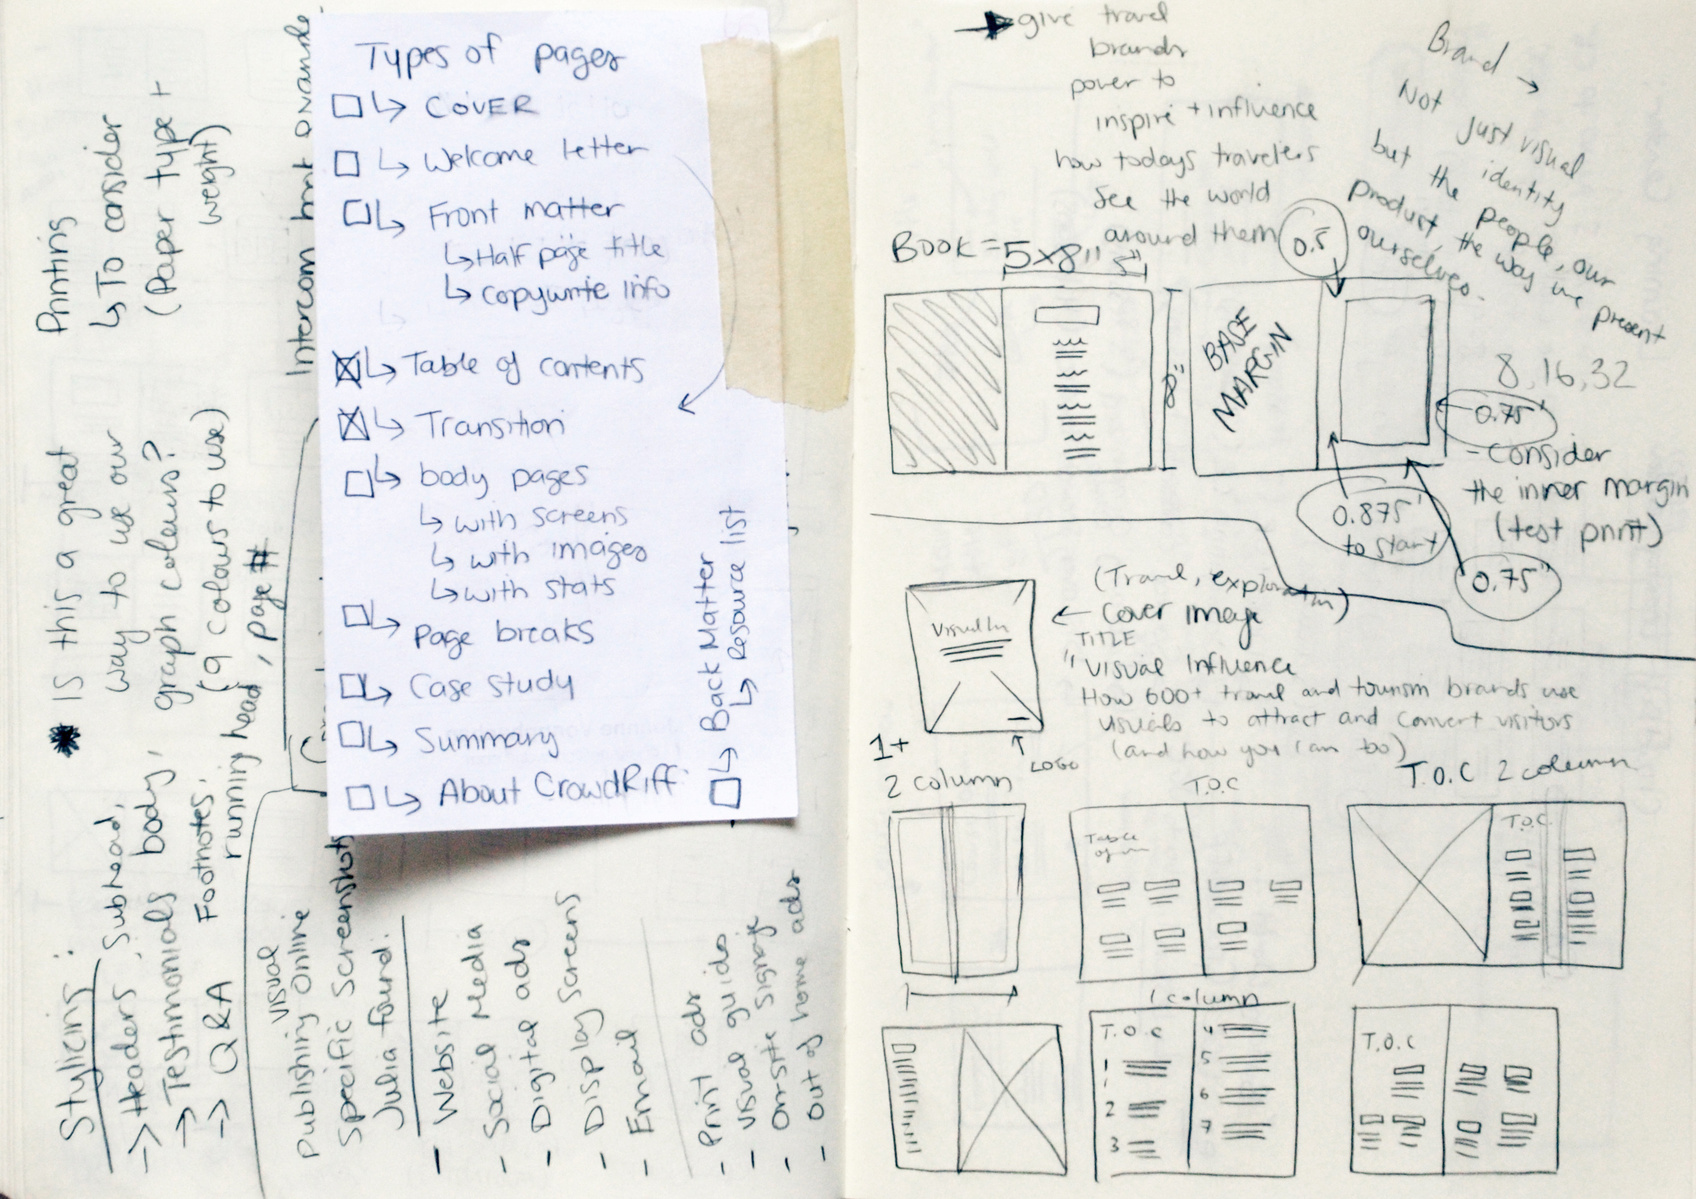 Types of pages
↳ COVER
↳ Welcome letter
↳ Front matter
↳ Half page title
↳ copywrite info
↳ Table of contents
↳ Transition
↳ body pages
↳ with screens
↳ with images
↳ with stats
↳ page breaks
↳ Case study
↳ Summary
↳ About CrowdRiff
Back Matter
↳ Resource list
Printing
↳ To consider
(Paper type +
weight)
Is this a great
way to use our
graph colours?
(9 colours to use)
Stylicing:
→ Headers, Subhead,
→ Testimonials body,
→ Q&A Footnotes,
running head, page #
Intercom
Visual
Publishing Online
Specific Screenshots
Julia found:
- Website
- Social Media
- Digital ads
- Display Screens
- Email
- Print ads
- Visual guides
- Onsite signage
- Out of home ads
→ give travel
brands
power to
inspire + influence
how todays travelers
see the world
around them
Brand →
Not just visual
identity
but the people, our
product, the way we present
ourselves.
BOOK = 5x8"
5"
8"
0.5
BASE
MARGIN
8, 16, 32
0.75"
- consider
the inner margin
(test print)
0.875"
to start
0.75"
(Travel, exploration)
← Cover image
TITLE
"Visual Influence
How 600+ travel and tourism brands use
visuals to attract and convert visitors
(and how you can too)
Visual In
LOGO
1+
2 column
T.O.C
T.O.C 2 column
Table
T.O.C
1 column
T.O.C
1
2
3
4
5
6
7
T.O.C